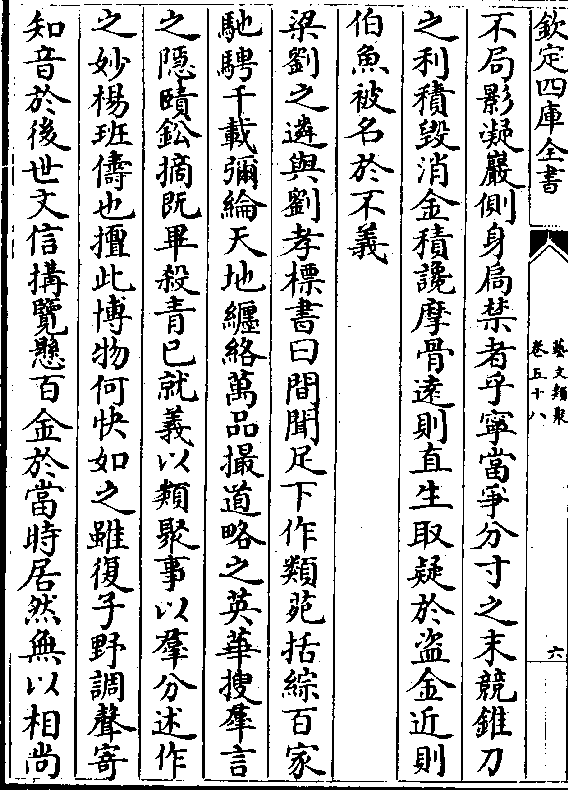 欽定四庫全書
藝文類聚
卷五十八
六
不局影凝嚴側身扃禁者乎寧當爭分寸之末競錐刀
之利積毀消金積讒摩骨遠則直生取疑於盗金近則
伯魚被名於不義
梁劉之遴與劉孝標書曰間聞足下作類苑括綜百家
馳騁千載彌綸天地纒絡萬品撮道略之英華搜羣言
之隠賾鈆摘既畢殺青已就義以類聚事以羣分述作
之妙楊班儔也擅此博物何快如之雖復子野調聲寄
知音於後世文信搆覽懸百金於當時居然無以相尚